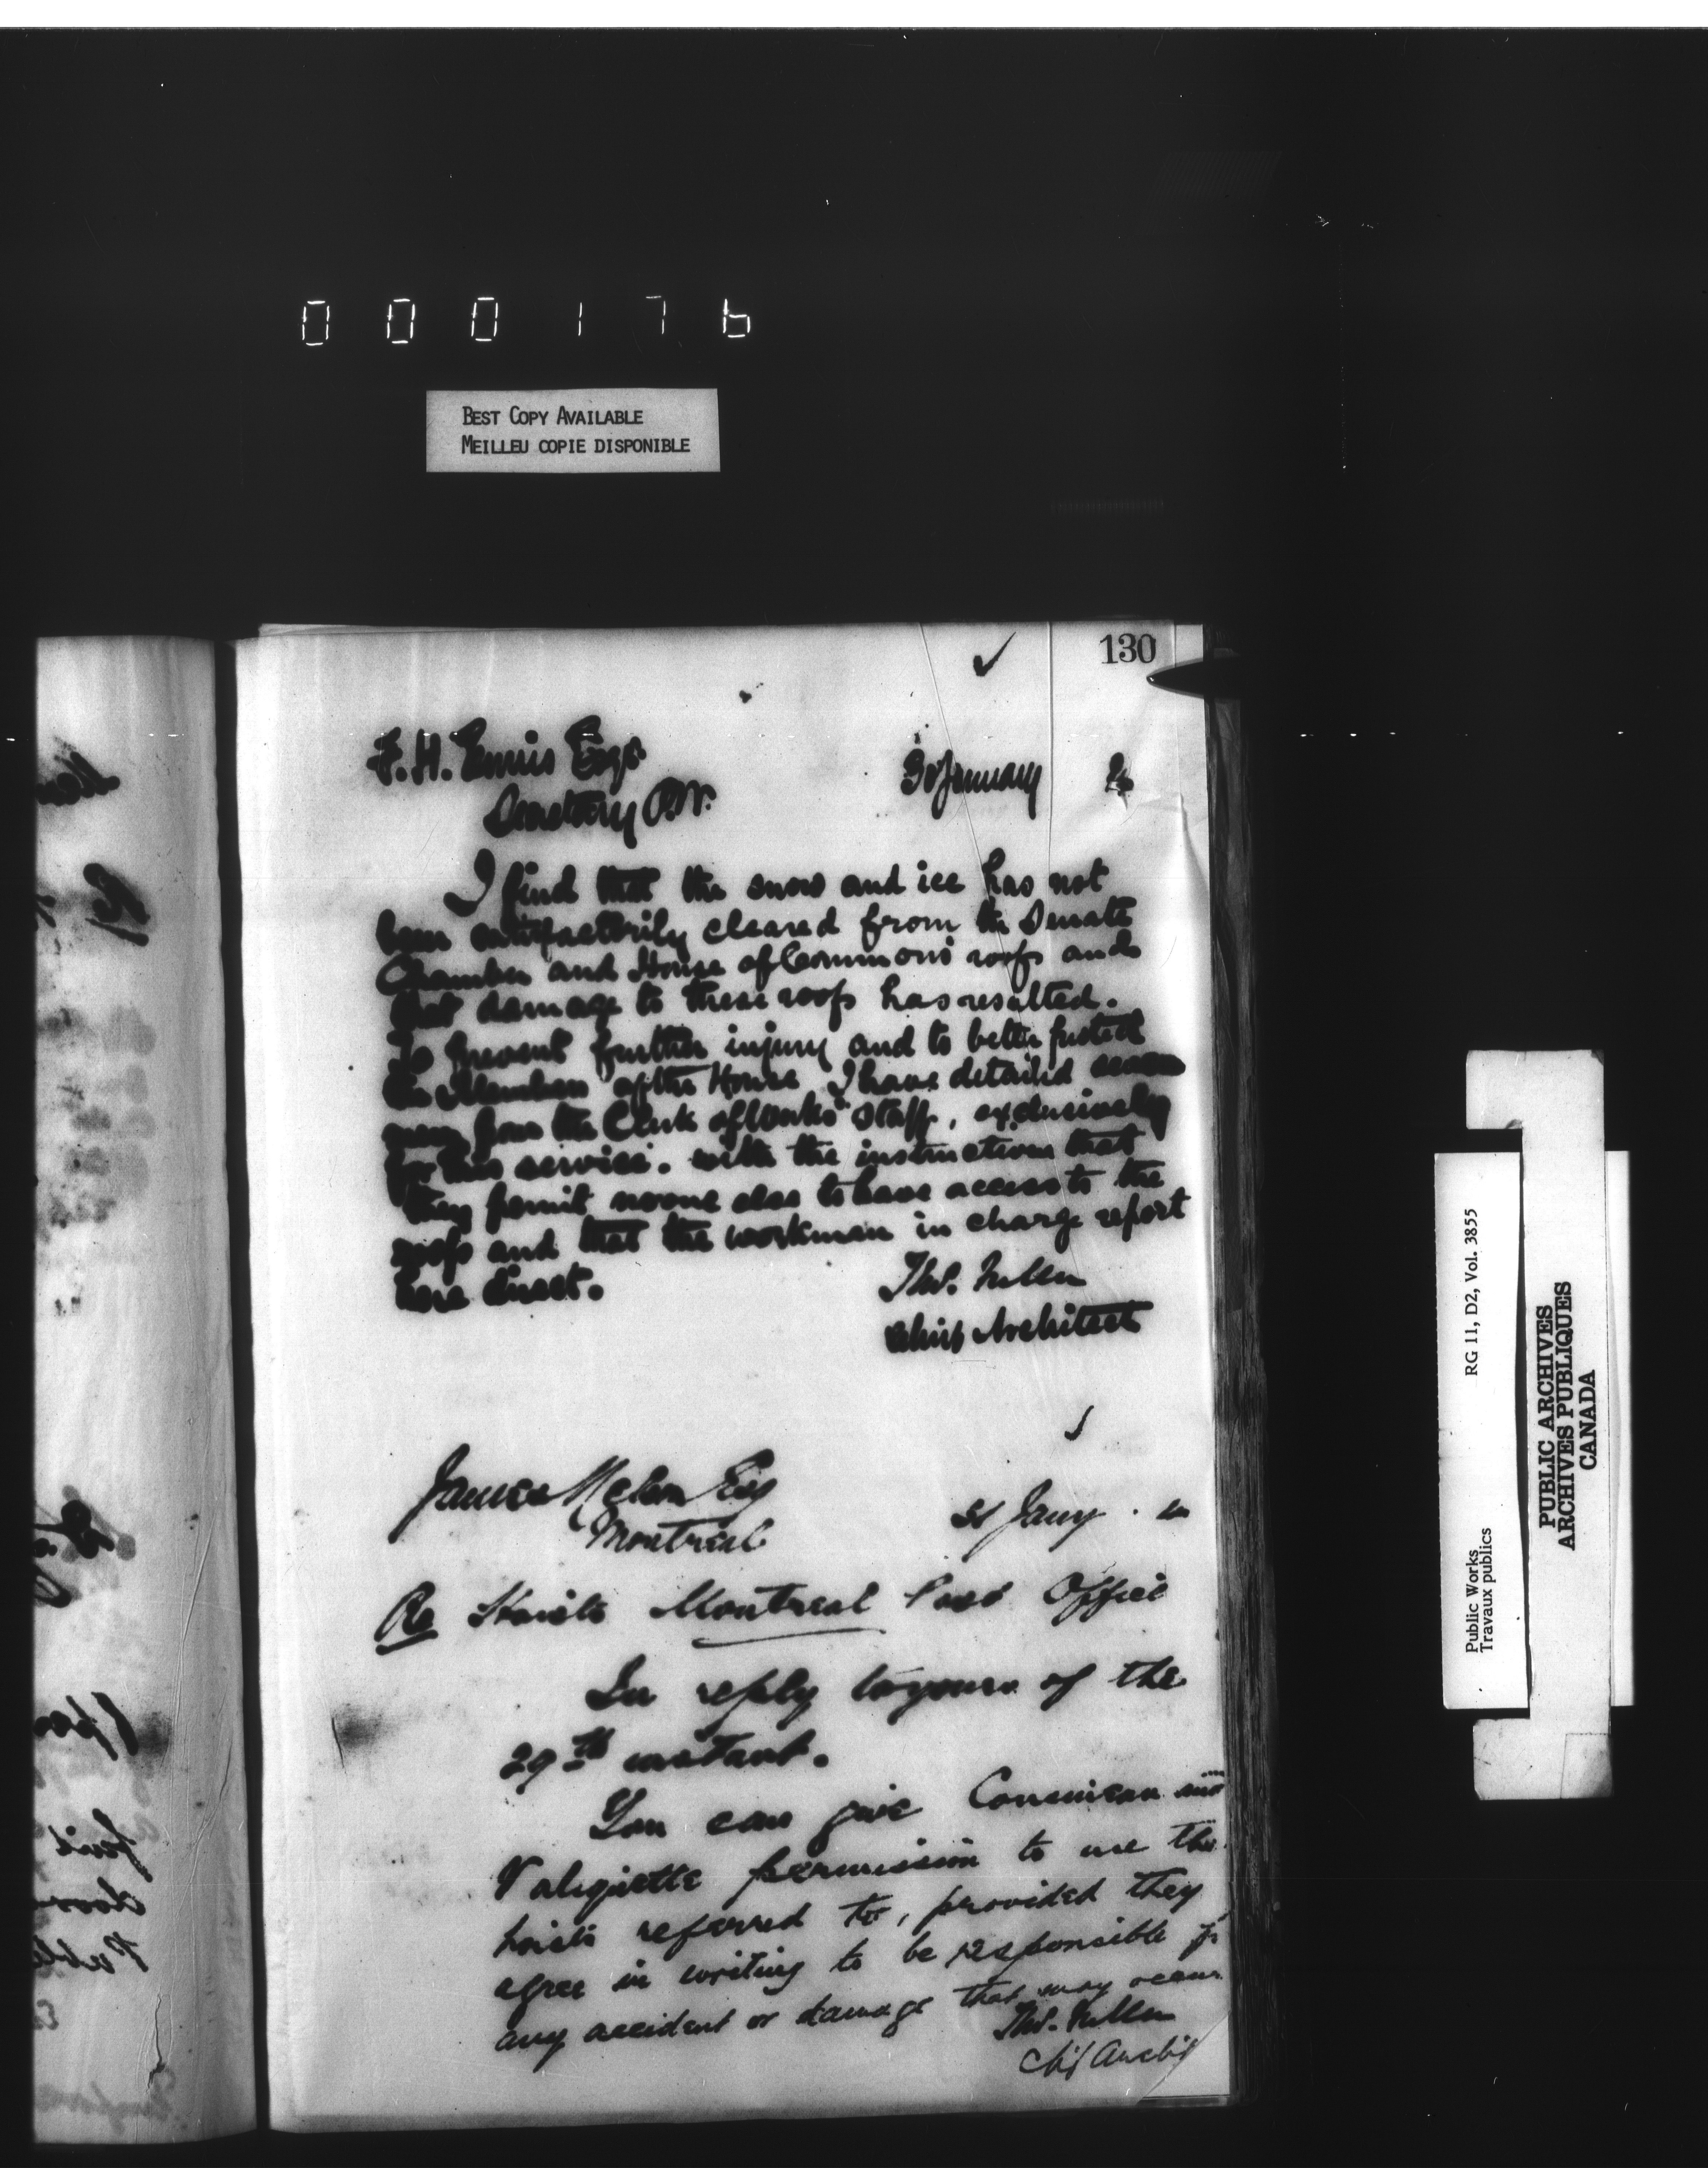 000176
BEST COPY AVAILABLE
MEILLEU COPIE DISPONIBLE
130
F. H. Ennis Esqr
30 January
Secretary P.W.
I find that the snow and ice has not
been satisfactorily cleared from the Senate
Chamber and House of Commons roofs and
that damage to these roofs has resulted.
To prevent further injury and to better protect
the Members of the House I have detailed
men from the Clerk of Works' Staff, exclusively
for this service. with the instructions that
they permit no one else to have access to the
roofs and that the workman in charge report
here direct.
Thos. Fuller
Chief Architect
James Nelson Esq
Montreal
31 Jany.
Re Hoists Montreal Post Office
In reply to yours of the
29th instant.
You can give and
Valiquette permission to use the
hoists referred to, provided they
agree in writing to be responsible for
any accident or damage that may occur
Thos. Fuller
Chf Archt
Public Works
Travaux publics
RG 11, D2, Vol. 3855
PUBLIC ARCHIVES
ARCHIVES PUBLIQUES
CANADA